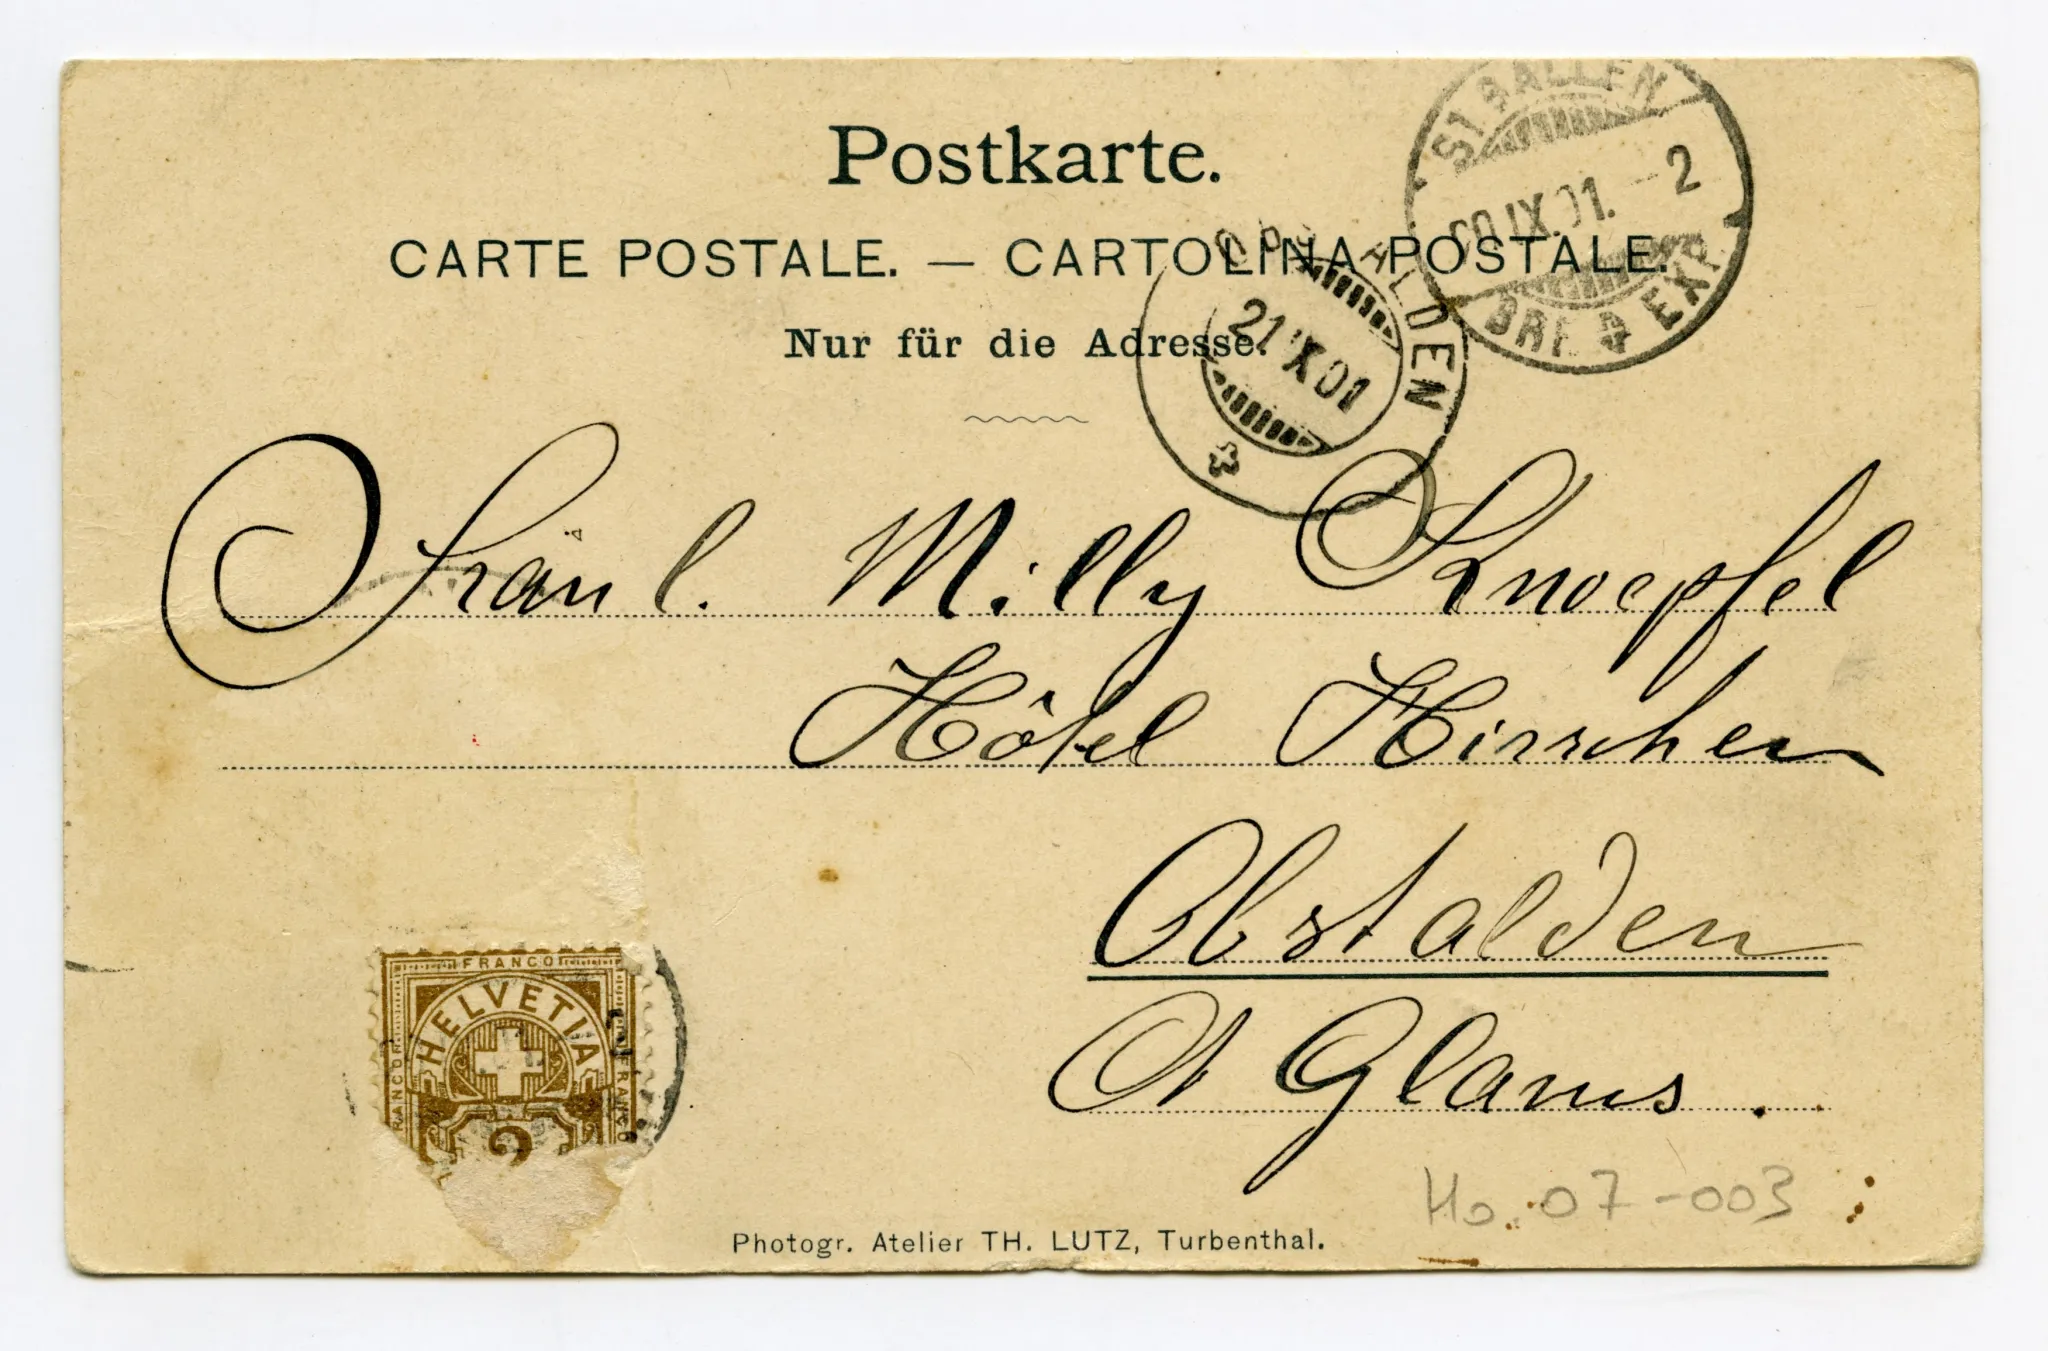 Postkarte.
CARTE POSTALE. — CARTOLINA POSTALE.
Nur für die Adresse.
ST. GALLEN
IX.01. – 2
BRF. EXP.
OBSTALDEN
21 IX 01
Fräul. Milly Knoepfel
Hôtel Hirschen
Obstalden
Ct Glarus.
FRANCO
HELVETIA
FRANCO
FRANCO
2
Ho. 07-003
Photogr. Atelier TH. LUTZ, Turbenthal.